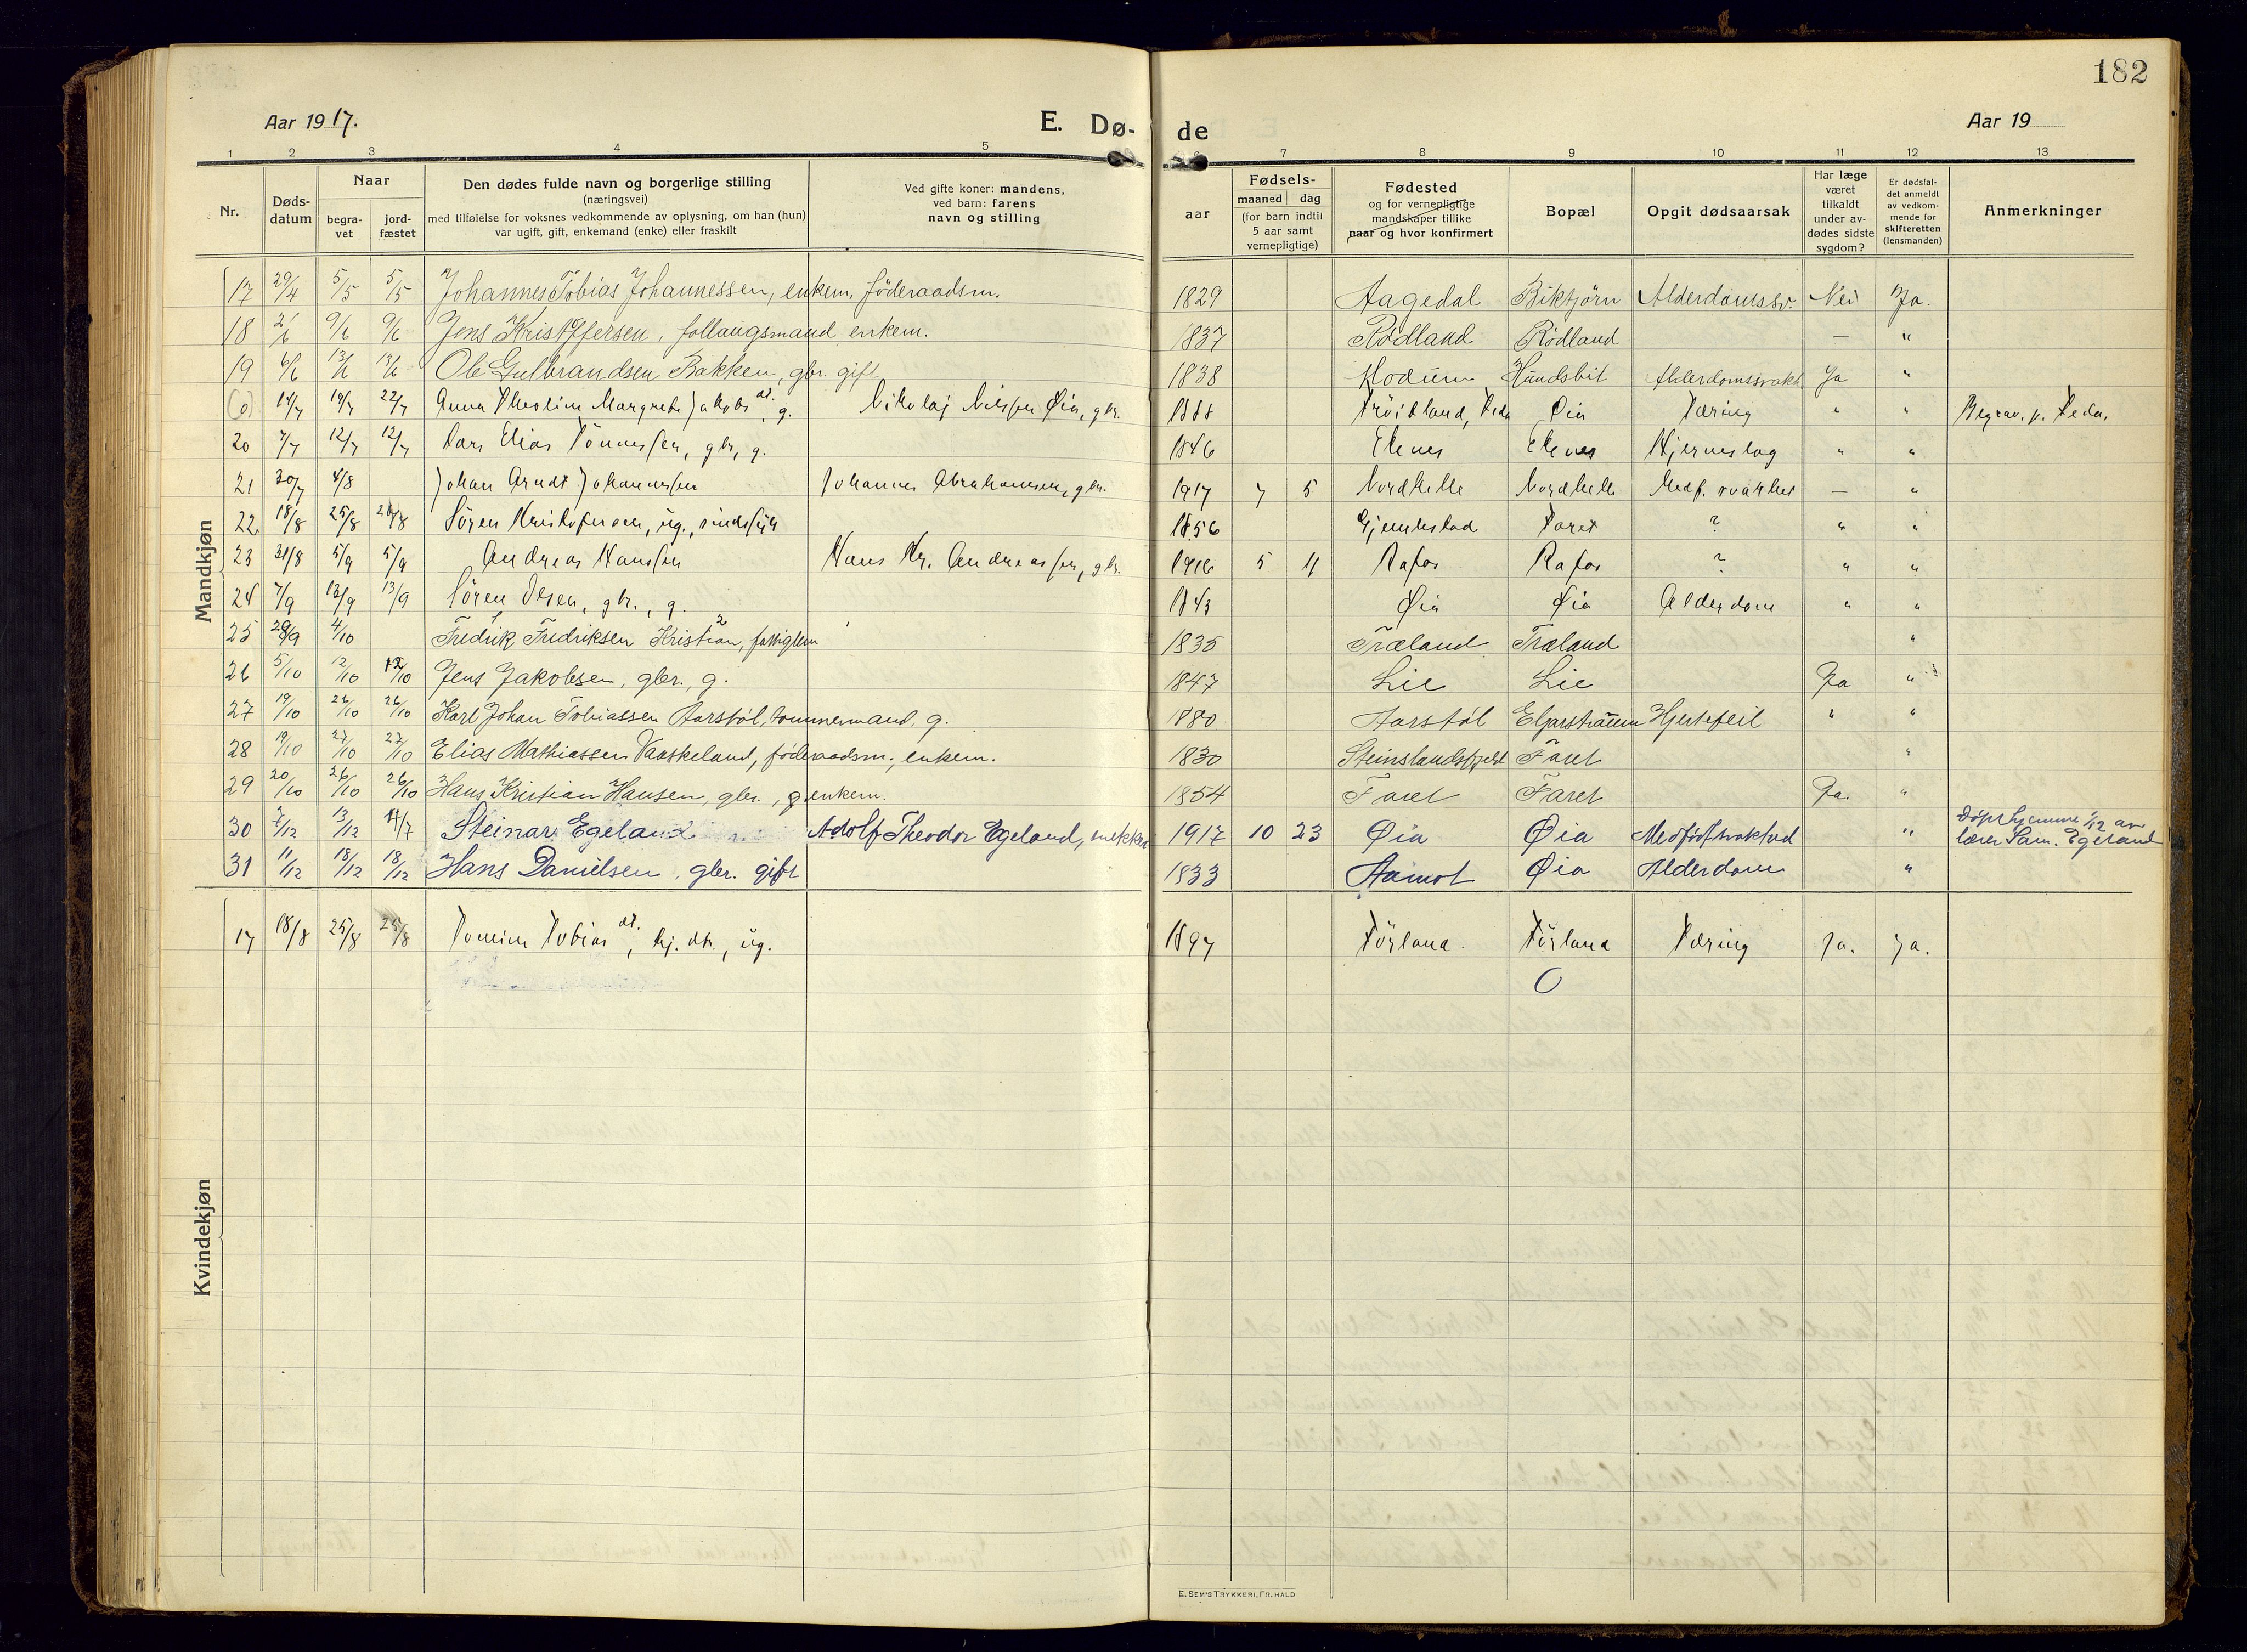 182
Aar 1917.
E. Dø-
de
Aar 19
1 2 3 4 5 7 8 9 10 11 12 13
Nr.
Døds-
datum
Naar
begra-
vet
jord-
fæstet
Den dødes fulde navn og borgerlige stilling
(næringsvei)
med tilføielse for voksnes vedkommende av oplysning, om han (hun)
var ugift, gift, enkemand (enke) eller fraskilt
Ved gifte koner: mandens,
ved barn: farens
navn og stilling
aar
Fødsels-
maaned dag
(for barn indtil
5 aar samt
vernepligtige)
Fødested
og for vernepligtige
mandskaper tillike
naar og hvor konfirmert
Bopæl
Opgit dødsaarsak
Har læge
været
tilkaldt
under av-
dødes sidste
sygdom?
Er dødsfal-
det anmeldt
av vedkom-
mende for
skifteretten
(lensmanden)
Anmerkninger
Mandkjøn
17 29/4 5/5 5/5 Johannes Tobias Johannessen, enkem, föderaadsm. 1829 Aagedal Biktjørn Alderdomssv. Nei Ja.
18 2/6 9/6 9/6 Jens Kristoffersen, enkem. 1837 Rödland Rödland — "
19 6/6 13/6 13/6 Ole Gulbrandsen Bakken, gbr. gift 1838 Modum Hundsbit Alderdomssvakh Ja "
(0) 14/7 19/7 22/7 Anna Theoline Margrete Jakobs dt. g. Nikolaj Nilssen Øia, gbr. 1888 Øia Tæring " " Begrav. p. Feda.
20 7/7 12/7 12/7 Lars Elias Tönnessen, gbr, g. 1846 Ekenes Ekenes Hjerneslag " "
21 30/7 4/8 Johan Arndt Johannessen Johannes Abrahamsen, gbr. 1917 7 5 Nordhelle Nordhelle Medf. svakhet — "
22 18/8 25/8 26/8 Sören Kristofersen, ug., sindssyk 1856 Gjemlestad Faret ? " "
23 31/8 5/9 5/9 Andreas Hanssen Hans Kr. Andreassen, gbr. 1916 5 11 Rafos Rafos ? " "
24 7/9 13/9 13/9 Sören Olsen, gbr., g. 1843 Øia Øia Alderdom " "
25 29/9 4/10 Fredrik Fredriksen Kristian, fattiglem 1835 Træland Træland "
26 5/10 12/10 12/10 Jens Jakobsen, gbr., g. 1847 Lie Lie Ja "
27 19/10 26/10 26/10 Karl Johan Tobiassen Aarstöl, tømmermand, g. 1880 Aarstöl Elgarstraum Hjertefeil " "
28 19/10 27/10 27/10 Elias Mathiassen Vaaskeland, föderaadsm., enkem. 1830 Steinslandsfjeld Faret "
29 20/10 26/10 26/10 Hans Kristian Hansen, gbr., g. enkem. 1854 Faret Faret Ja. "
30 7/12 13/12 Steinar Egeland Adolf Theodor Egeland, 1917 10 23 Øia Øia Medfødt svakhed " Døpt hjemme 1/12 av
lærer Sam. Egeland
31 11/12 18/12 18/12 Hans Danielsen, gbr. gift 1833 Aamot Øia Alderdom "
Kvindekjøn
17 18/8 25/8 25/8 Tomine Tobias dt., hj. dtr., ug. 1897 Förland. Förland Tæring Ja. Ja.
E. SEM'S TRYKKERI, FR.HALD